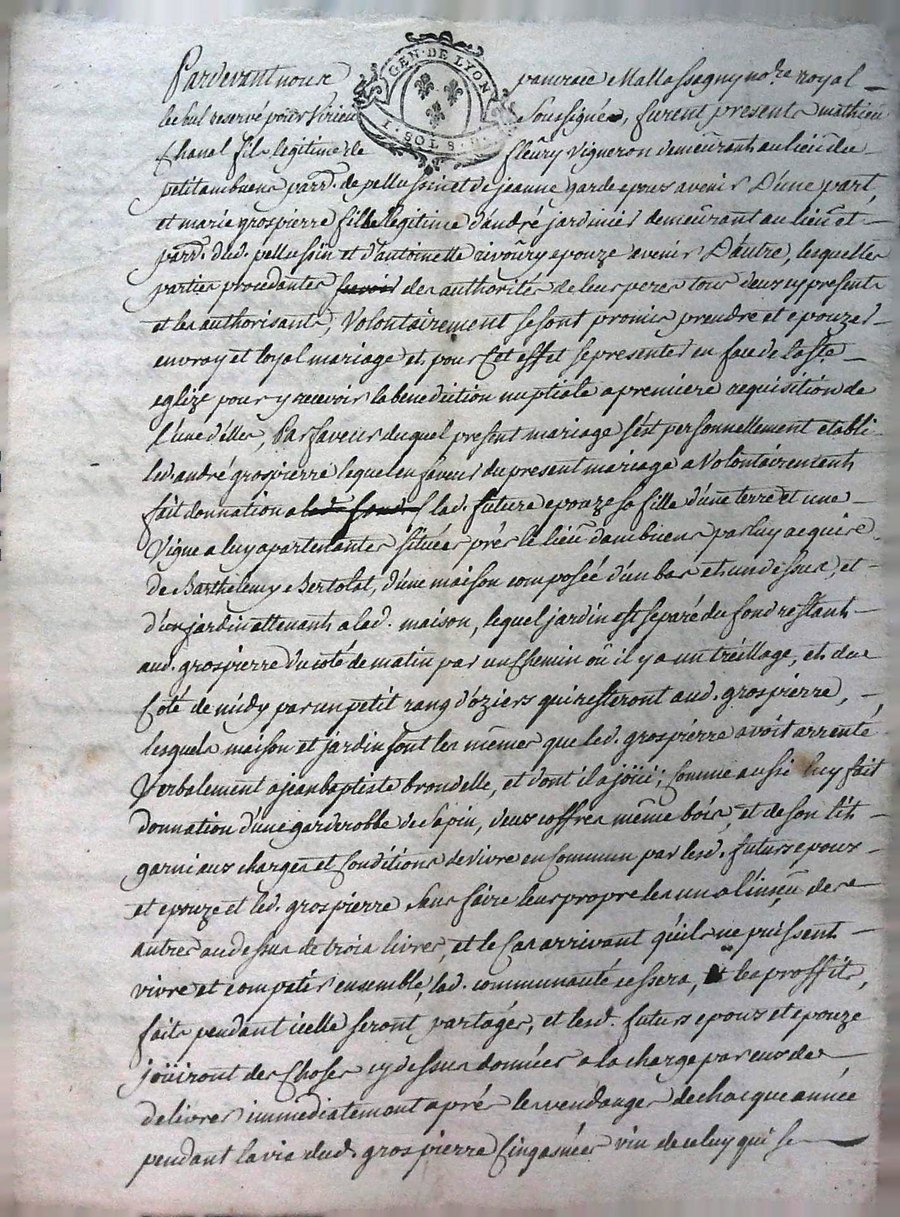 Pardevant nous pancrace Mallassagny nore. royal
le bul reservé pour Virieu Soussigné, furent presents mathieu
Chanal fils legitime de fleury vigneron demeurant au lieu du
GEN · DE LYON
I · SOL 8 · D
petit ambuens parr. de pellussin et de jeanne garde epoux avenir D'une part,
et marie grospierre fille legitime d'andré jardinier demeurant au lieu et
parr. dud. pellussin et d'antoinette rivoury epouze avenir D'autre, lesquelles
parties procedantes scavoir des authorités de leurs peres tous deux cy presents
et les authorisants, Volontairement se sont promis prendre et epouzer
en vray et loyal mariage et pour cet effet se presenter en face de la ste.
eglize pour y recevoir la benediction nuptiale a premiere requisition de
l'une d'elles, Par faveur duquel present mariage s'est personnellement etabli
led. andré grospierre lequel en faveur du present mariage a Volontairement
fait donnation a lad. future epouze sa fille d'une terre et une
Vigne a luy apartenantes situées prés le lieu dambuens par luy acquise
de Barthelemy Bertolat, d'une maison composée d'un bas et un dessus, et
d'un jardin attenant a lad. maison, lequel jardin est separé du fond restant
aud. grospierre du coté de matin par un Chemin où il y a un treillage, et du
Coté de midy par un petit rang d'oziers qui resteront aud. grospierre,
lesquels maison et jardin sont les mêmes que led. grospierre avoit arrenté
Verbalement a jean baptiste brondelle, et dont il a joüi; Comme aussi luy fait
donnation d'une garderobbe de sapin, deux coffres même bois, et de son lit
garni aux charges et Conditions de vivre en Commun par lesd. futurs epoux
et epouze et led. grospierre sans faire leur propre les uns a l'insçu des
autres au dessus de trois livres, et le Cas arrivant qu'ils ne puissent
vivre et compatir ensemble, lad. communauté cessera, et les proffits
faits pendant icelle seront partagés, et lesd. futurs epoux et epouze
joüiront des Choses cy dessus données a la charge par eux de
delivrer immediatement aprés les vendanges de chacque année
pendant la vie dud. grospierre Cinq asnées vin de celuy qui se